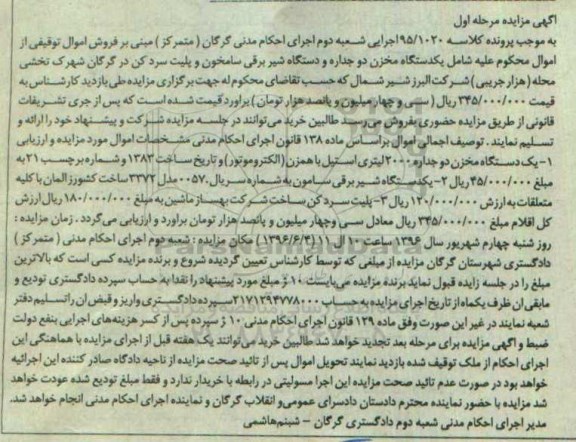 آگهی مزایده مرحله اول
به موجب پرونده کلاسه ۹۵/۱۰۲۰ اجرایی شعبه دوم اجرای احکام مدنی گرگان ( متمرکز ) مبنی بر فروش اموال توقیفی از
اموال محکوم علیه شامل یکدستگاه مخزن دو جداره و دستگاه شیر برقی سامخون و پلیت سرد کن در گرگان شهرک نخشی
محله (هزار جریبی ) شرکت البرز شیر شمال که حسب تقاضای محکوم له جهت برگزاری مزایده طی بازدید کارشناس به
قیمت ۳۴۵/۰۰۰/۰۰۰ ریال ( سی و چهار میلیون و پانصد هزار تومان ) براورد قیمت شده است که پس از جری تشریفات
قانونی از طریق مزایده حضوری بفروش می رسد طالبین خرید می توانند در جلسه مزایده شرکت و پیشنهاد خود را ارائه و
تسلیم نمایند . توصیف اجمالی اموال براساس ماده ۱۳۸ قانون اجرای احکام مدنی مشخصات اموال مورد مزایده و ارزیابی
۱- یک دستگاه مخزن دو جداره ۲۰۰۰ لیتری استیل با همزن (الکتروموتور) و تاریخ ساخت ۱۳۸۳ و شماره برچسب ۲۱ به
مبلغ ۴۵/۰۰۰/۰۰۰ ریال ۲- یکدستگاه شیر برقی سامون به شماره سریال ۰۰۵۷ مدل ۳۳۷۲ ساخت کشور المان با کلیه
متعلقات به ارزش ۱۲۰/۰۰۰/۰۰۰ ریال ۳- پلیت سرد کن ساخت شرکت بهساز ماشین به مبلغ ۱۸۰/۰۰۰/۰۰۰ ریال ارزش
کل اقلام مبلغ ۳۴۵/۰۰۰/۰۰۰ ریال معادل سی وچهار میلیون و پانصد هزار تومان براورد و ارزیابی می گردد . زمان مزایده :
روز شنبه چهارم شهریور سال ۱۳۹۶ ساعت ۱۰ ال ۱۱ (۱۳۹۶/۶/۴) مکان مزایده : شعبه دوم اجرای احکام مدنی ( متمرکز )
دادگستری شهرستان گرگان مزایده از مبلغی که توسط کارشناس تعیین گردیده شروع و برنده مزایده کسی است که بالاترین
مبلغ را در جلسه زایده قبول نماید برنده مزایده می بایست ۱۰ ٪ مبلغ مورد پیشنهاد را نقدا به حساب سپرده دادگستری تودیع و
مابقی ان ظرف یکماه از تاریخ اجرای مزایده به حساب ۲۱۷۱۲۹۴۷۷۸۰۰۰ سپرده دادگستری واریز و قبض ان راتسلیم دفتر
شعبه نمایند در غیر این صورت وفق ماده ۱۲۹ قانون اجرای احکام مدنی ۱۰ ٪ سپرده پس از کسر هزینه های اجرایی بنفع دولت
ضبط و اگهی مزایده برای مرحله بعد تجدید خواهد شد طالبین خرید می توانند یک هفته قبل از اجرای مزایده با هماهنگی این
اجرای احکام از ملک توقیف شده بازدید نمایند تحویل اموال پس از تائید صحت مزایده از ناحیه دادگاه صادر کننده این اجرائیه
خواهد بود در صورت عدم تائید صحت مزایده این اجرا مسولیتی در رابطه با خریدار ندارد و فقط مبلغ تودیع شده عودت خواهد
شد مزایده با حضور نماینده محترم دادستان دادسرای عمومی و انقلاب گرگان و نماینده اجرای احکام مدنی انجام خواهد شد.
مدیر اجرای احکام مدنی شعبه دوم دادگستری گرگان – شبنم هاشمی